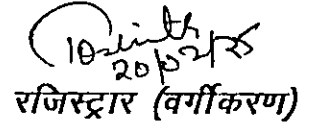 20/02/25
रजिस्ट्रार (वर्गीकरण)